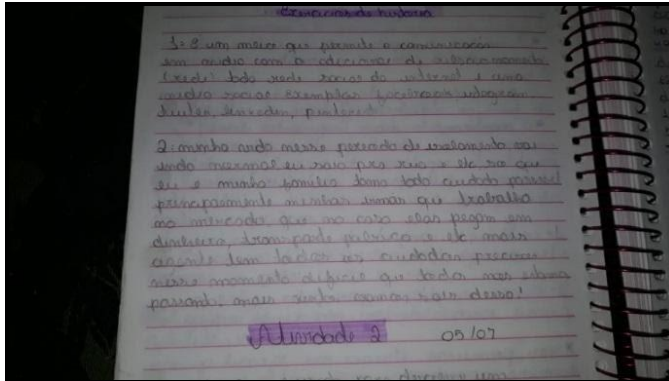 Exercicios de historia
1= é um meio que permite a comunicação
em audio com o adicional de relacionamento
(rede) todo rede social da internet é uma
midia social exemplos facebook instagram
twiter, linkedin, pinterest
2- minha vida nesse periodo de isolamento
indo normal eu saio pra rua e etc so que
eu e minha familia toma todo cuidado possivel
principalmente minhas irmãs que trabalha
no mercado que no caso elas pegam em
dinheiro, transporte público e etc mais
agente tem todos os cuidados precisos
nesse momento dificil que todos nos estamos
passando, mais juntos vamos sair dessa!
Atividade 2 05/07